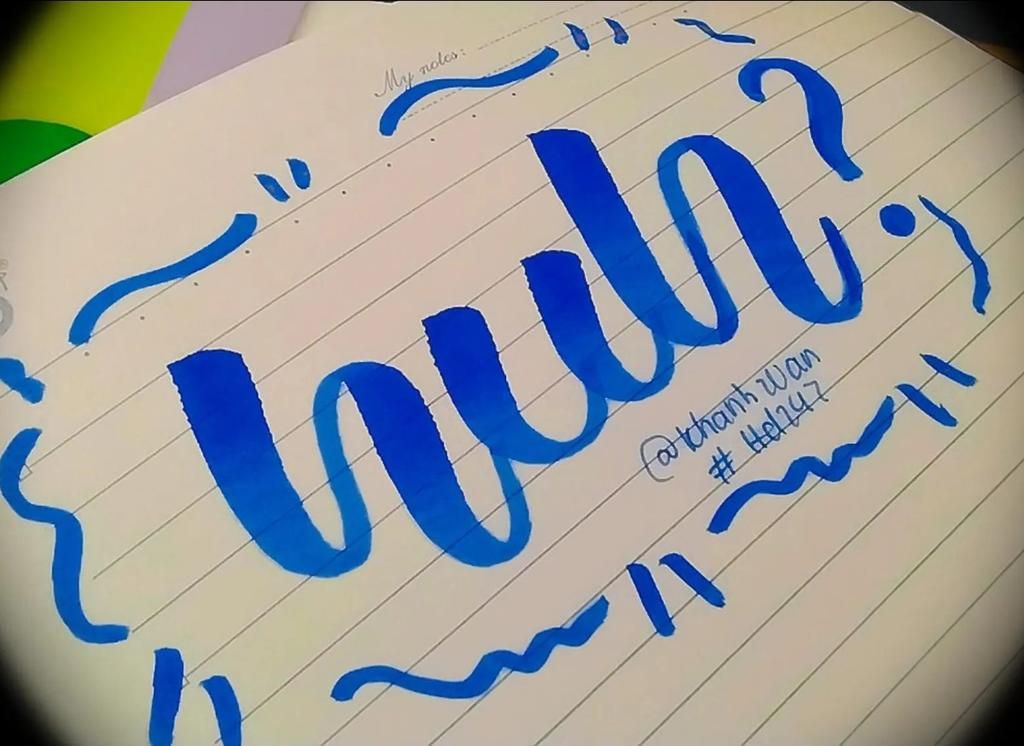 My notes:
huh?
@khanhwan
# Hd247